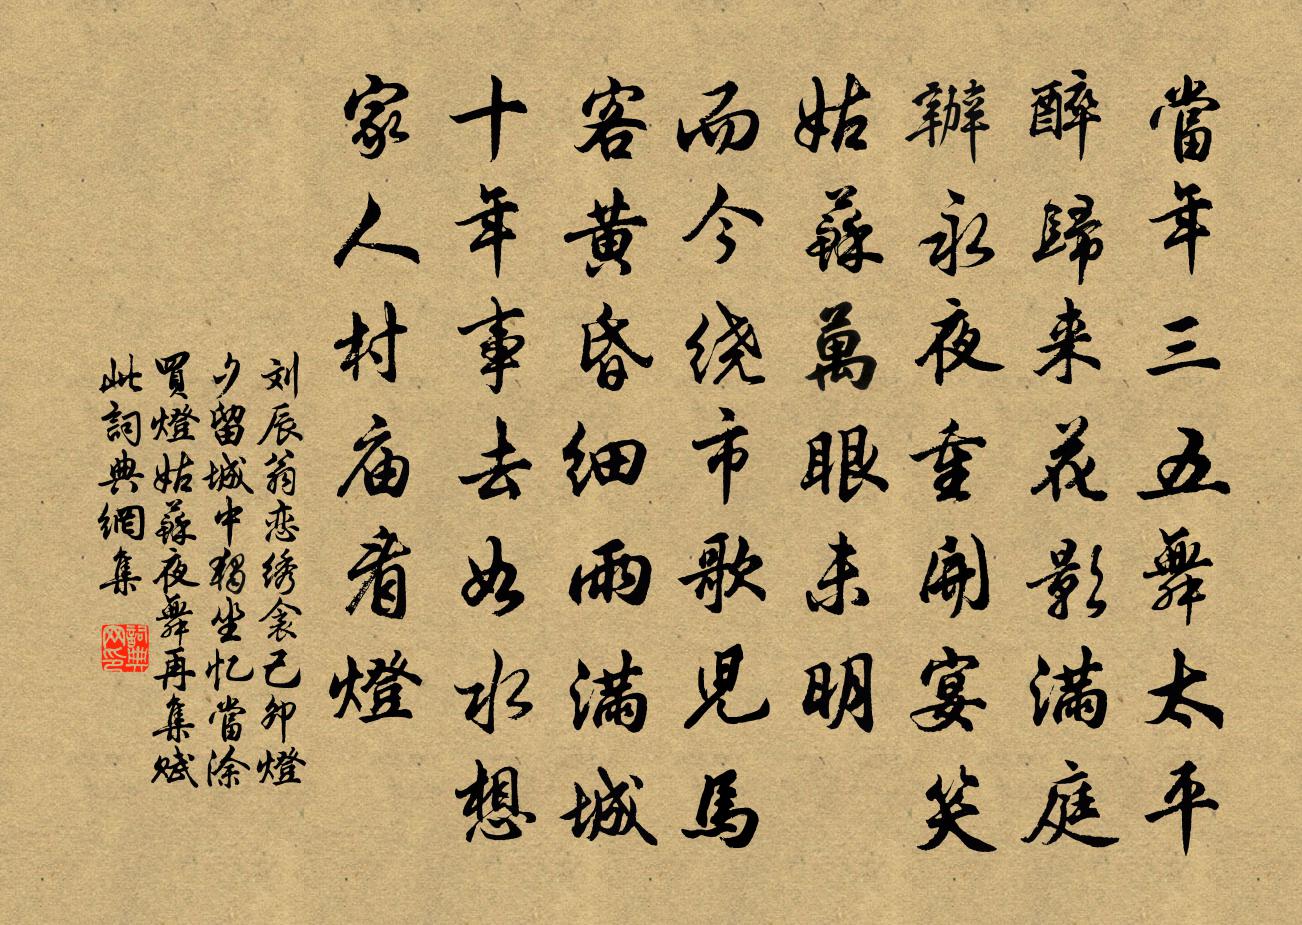 當年三五舞太平
醉歸来花影满庭
辦永夜重開宴笑
姑蘇萬眼未明
而今绕市歌児馬
客黄昏细雨满城
十年事去如水想
家人村庙看燈
刘辰翁恋绣衾己卯燈
夕留城中獨坐忆當涂
買燈姑蘇夜舞再集賦
此詞典網集
詞典网印